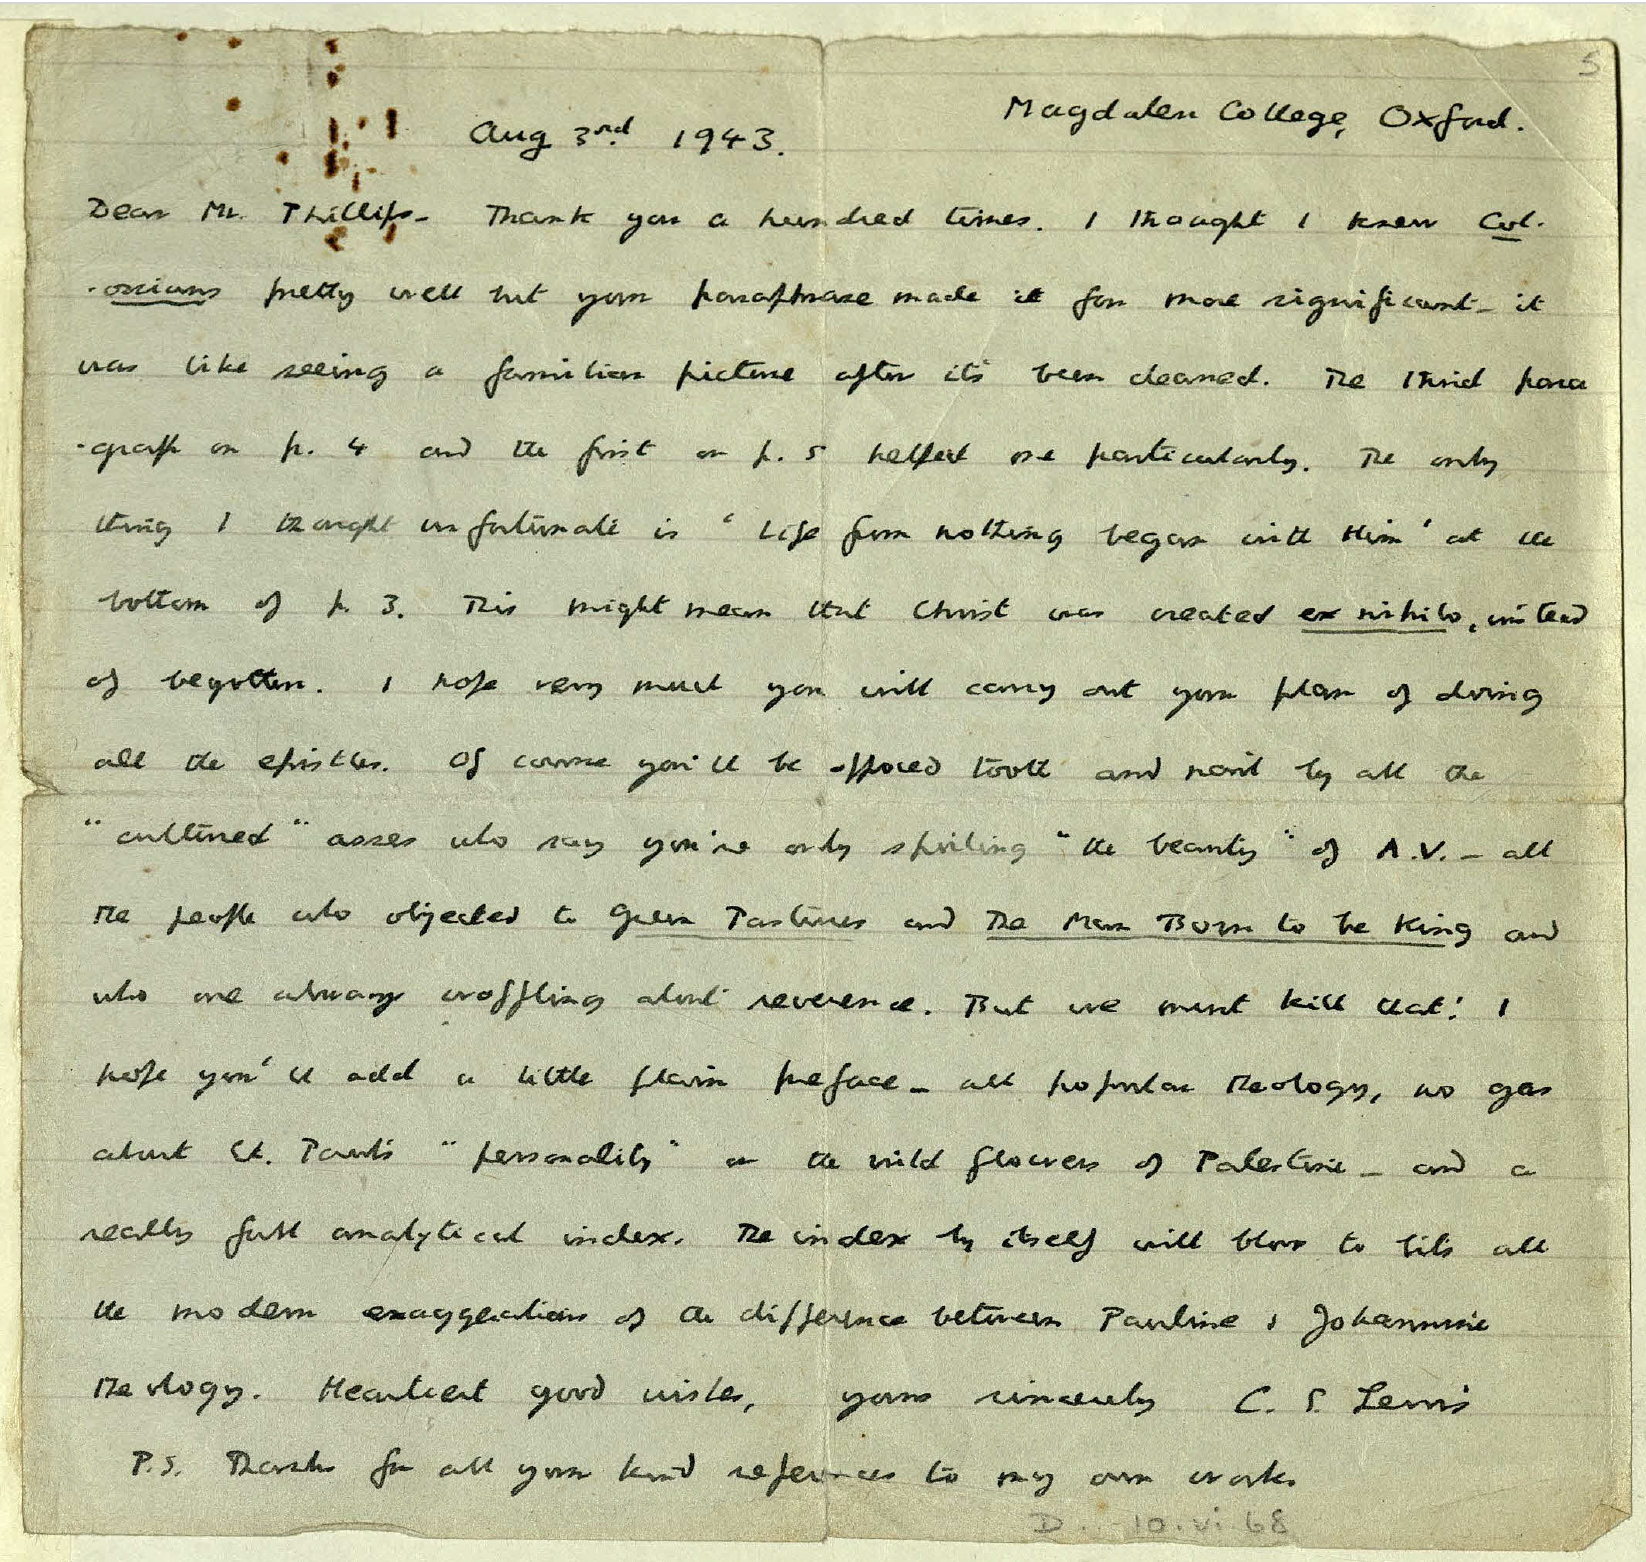 5
Magdalen College, Oxford.
Aug 3rd. 1943.
Dear Mr. Phillips— Thank you a hundred times. I thought I knew Col-
-ossians pretty well but your paraphrase made it far more significant— it
was like seeing a familiar picture after it's been cleaned. The third para
-graph on p. 4 and the first on p. 5 helped me particularly. The only
thing I thought unfortunate is 'Life from nothing began with Him' at the
bottom of p. 3. This might mean that Christ was created ex nihilo, instead
of begotten. I hope very much you will carry out your plan of doing
all the epistles. Of course you'll be opposed tooth and nail by all the
"cultured" asses who say you're only spoiling "the beauty" of A.V. — all
the people who objected to Green Pastures and The Man Born to be King and
who are always woffling about reverence. But we must kill that! I
hope you'll add a little plain preface — all popular theology, no gas
about St. Paul's "personality" or the wild flowers of Palestine — and a
really full analytical index. The index by itself will blow to bits all
the modern exaggerations of the difference between Pauline & Johannine
theology. Heartiest good wishes, yours sincerely C. S. Lewis
P.S. Thanks for all your kind references to my own works
D. 10.vi.68